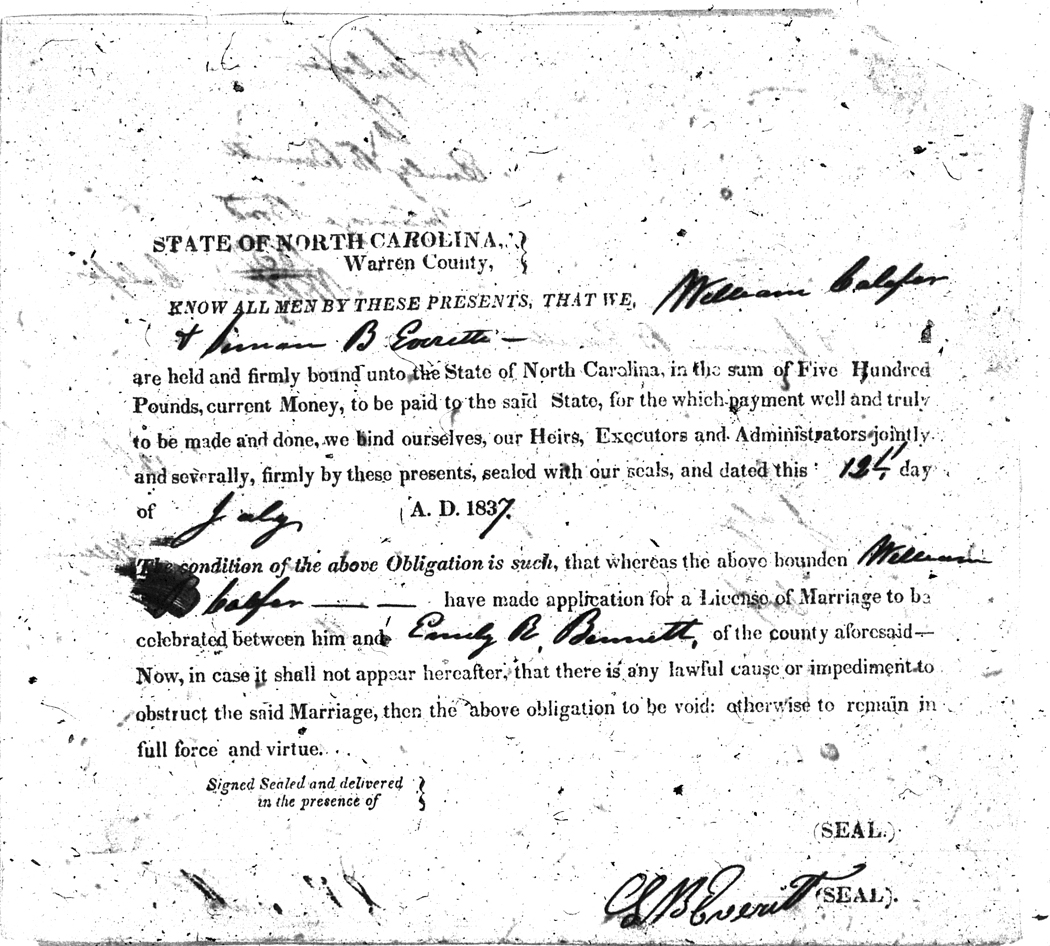 STATE OF NORTH CAROLINA,
Warren County,
KNOW ALL MEN BY THESE PRESENTS, THAT WE, William Calefer
& B Everette —
are held and firmly bound unto the State of North Carolina, in the sum of Five Hundred
Pounds, current Money, to be paid to the said State, for the which payment well and truly
to be made and done, we bind ourselves, our Heirs, Executors and Administrators jointly
and severally, firmly by these presents, sealed with our seals, and dated this 12th day
of July A. D. 1837.
The condition of the above Obligation is such, that whereas the above bounden William
Calefer — — have made application for a License of Marriage to be
celebrated between him and Emily R. Bennett, of the county aforesaid—
Now, in case it shall not appear hereafter, that there is any lawful cause or impediment to
obstruct the said Marriage, then the above obligation to be void: otherwise to remain in
full force and virtue.
Signed Sealed and delivered
in the presence of
(SEAL.)
B Everitt (SEAL).